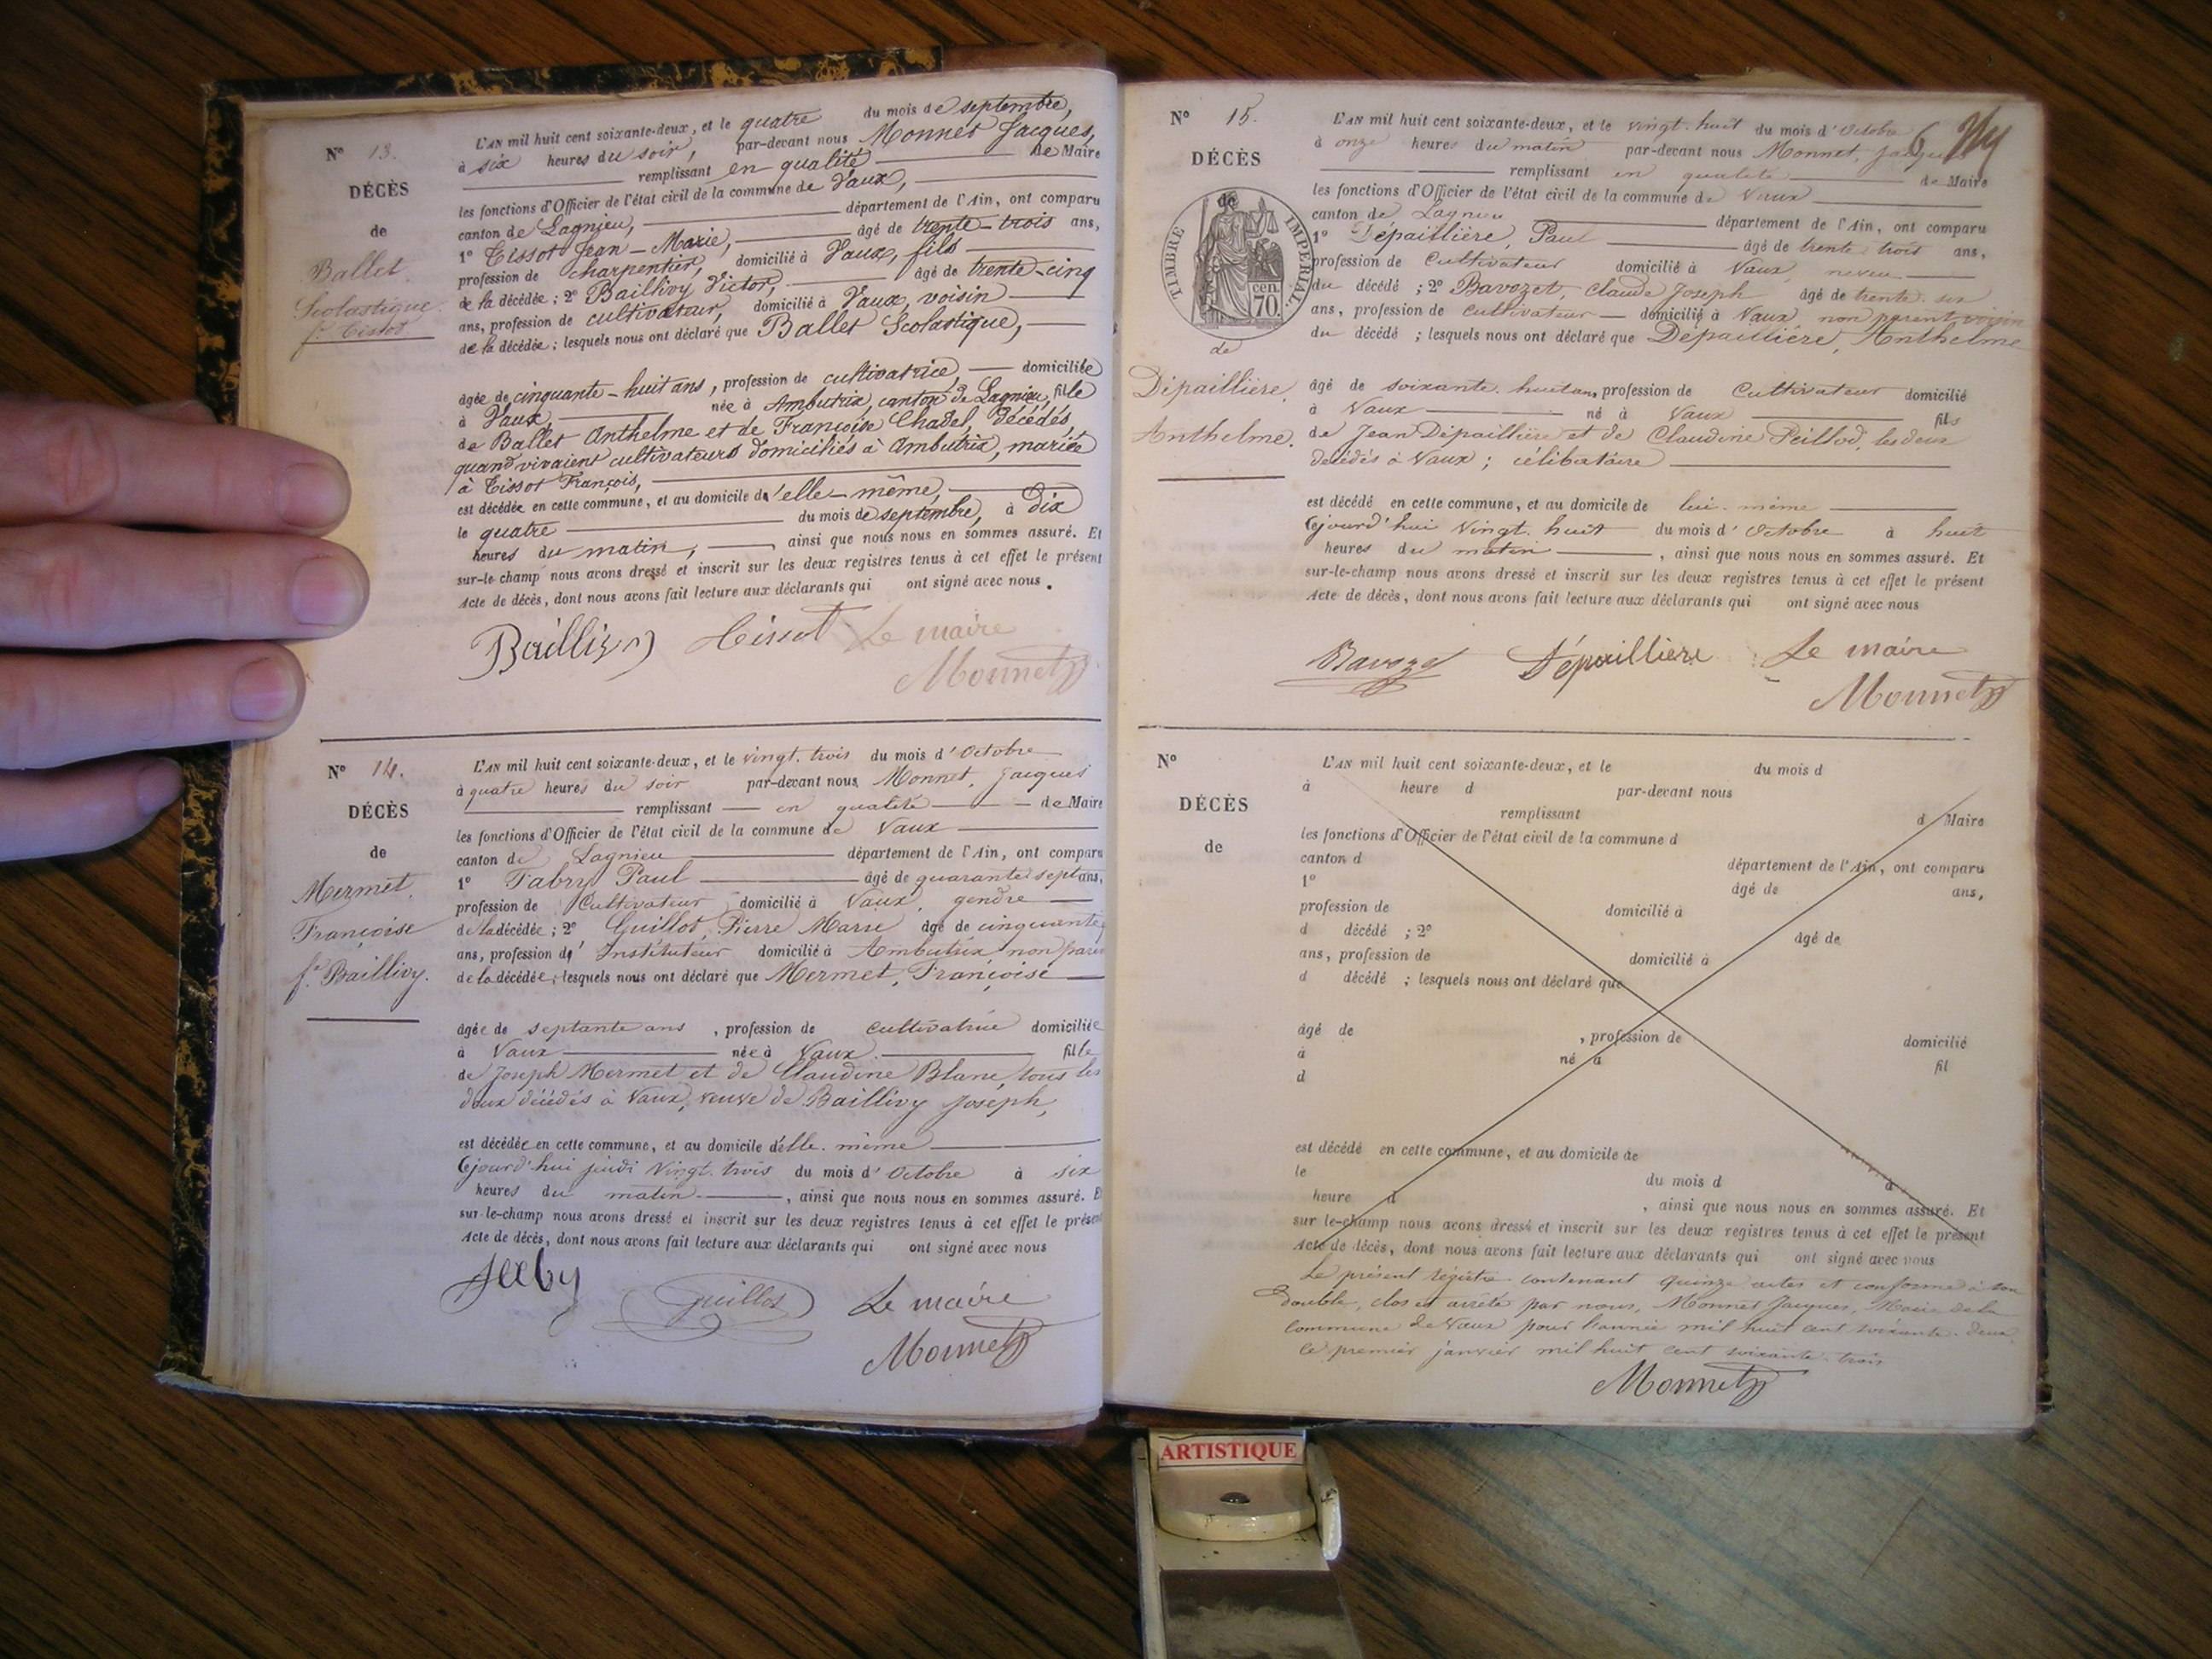 N° 13.
DÉCÈS
de
Ballet
Scolastique
f.e Tissot
L'AN mil huit cent soixante-deux, et le quatre du mois de septembre,
à six heures du soir, par-devant nous Monnet Jacques,
remplissant en qualité de Maire
les fonctions d'Officier de l'état civil de la commune de Vaux,
canton de Lagnieu, département de l'Ain, ont comparu
1° Tissot Jean-Marie, âgé de trente-trois ans,
profession de charpentier, domicilié à Vaux, fils
de la décédée ; 2° Baillivy Victor, âgé de trente-cinq
ans, profession de cultivateur, domicilié à Vaux, voisin
de la décédée ; lesquels nous ont déclaré que Ballet Scolastique,
âgée de cinquante-huit ans, profession de cultivatrice, domiciliée
à Vaux, née à Ambutrix, canton de Lagnieu, fille
de Ballet Anthelme et de Françoise Chadel, décédés,
quand vivaient cultivateurs domiciliés à Ambutrix, mariée
à Tissot François,
est décédée en cette commune, et au domicile d'elle-même,
le quatre du mois de septembre, à dix
heures du matin, ainsi que nous nous en sommes assuré. Et
sur-le-champ nous avons dressé et inscrit sur les deux registres tenus à cet effet le présent
Acte de décès, dont nous avons fait lecture aux déclarants qui ont signé avec nous.
Baillivy Tissot Le maire
Monnet
N° 14.
DÉCÈS
de
Mermet,
Françoise
f.e Baillivy.
L'AN mil huit cent soixante-deux, et le vingt-trois du mois d'Octobre
à quatre heures du soir par-devant nous Monnet, Jacques
remplissant en qualité de Maire
les fonctions d'Officier de l'état civil de la commune de Vaux
canton de Lagnieu département de l'Ain, ont comparu
1° Fabry Paul âgé de quarante sept ans,
profession de Cultivateur domicilié à Vaux, gendre
de la décédée ; 2° Guillot, Pierre Marie âgé de cinquante
ans, profession d'Instituteur domicilié à Ambutrix non paren
de la décédée ; lesquels nous ont déclaré que Mermet, Françoise
âgée de septante ans, profession de cultivatrice domiciliée
à Vaux née à Vaux fille
de Joseph Mermet et de Claudine Blanc, tous les
deux décédés à Vaux, veuve de Baillivy Joseph,
est décédée en cette commune, et au domicile d'elle-même
Cejourd'hui jeudi Vingt-trois du mois d'Octobre à six
heures du matin, ainsi que nous nous en sommes assuré. Et
sur-le-champ nous avons dressé et inscrit sur les deux registres tenus à cet effet le présent
Acte de décès, dont nous avons fait lecture aux déclarants qui ont signé avec nous
Guillot Le maire
Monnet
N° 15.
DÉCÈS
de
TIMBRE IMPERIAL.
cen. 70.
de
Dépaillière,
Anthelme.
6
L'AN mil huit cent soixante-deux, et le vingt-huit du mois d'Octobre
à onze heures du matin par-devant nous Monnet, Jacques
remplissant en qualité de Maire
les fonctions d'Officier de l'état civil de la commune de Vaux
canton de Lagnieu département de l'Ain, ont comparu
1° Dépaillière, Paul âgé de trente trois ans,
profession de Cultivateur domicilié à Vaux, neveu
du décédé ; 2° Bavozet, Claude Joseph âgé de trente-six
ans, profession de Cultivateur domicilié à Vaux non parent voisin
du décédé ; lesquels nous ont déclaré que Dépaillière, Anthelme
âgé de soixante-huit ans, profession de Cultivateur domicilié
à Vaux né à Vaux fils
de Jean Dépaillière et de Claudine Peillod, les deux
décédés à Vaux ; célibataire
est décédé en cette commune, et au domicile de lui-même
Cejourd'hui Vingt-huit du mois d'Octobre à huit
heures du matin, ainsi que nous nous en sommes assuré. Et
sur-le-champ nous avons dressé et inscrit sur les deux registres tenus à cet effet le présent
Acte de décès, dont nous avons fait lecture aux déclarants qui ont signé avec nous
Bavozet Dépaillière Le maire
Monnet
N°
DÉCÈS
de
L'AN mil huit cent soixante-deux, et le du mois d
à heure d par-devant nous
remplissant d Maire
les fonctions d'Officier de l'état civil de la commune d
canton d département de l'Ain, ont comparu
1° âgé de ans,
profession de domicilié à
d décédé ; 2° âgé de
ans, profession de domicilié à
d décédé ; lesquels nous ont déclaré que
âgé de , profession de domicilié
à né à fil
d
est décédé en cette commune, et au domicile de
le du mois d à
heure d , ainsi que nous nous en sommes assuré. Et
sur le-champ nous avons dressé et inscrit sur les deux registres tenus à cet effet le présent
Acte de décès, dont nous avons fait lecture aux déclarants qui ont signé avec nous
Le présent registre contenant quinze actes et conforme à son
double, clos et arrêté par nous, Monnet Jacques, Maire de la
commune de Vaux pour l'année mil huit cent soixante-deux
ce premier janvier mil huit cent soixante-trois
Monnet
ARTISTIQUE